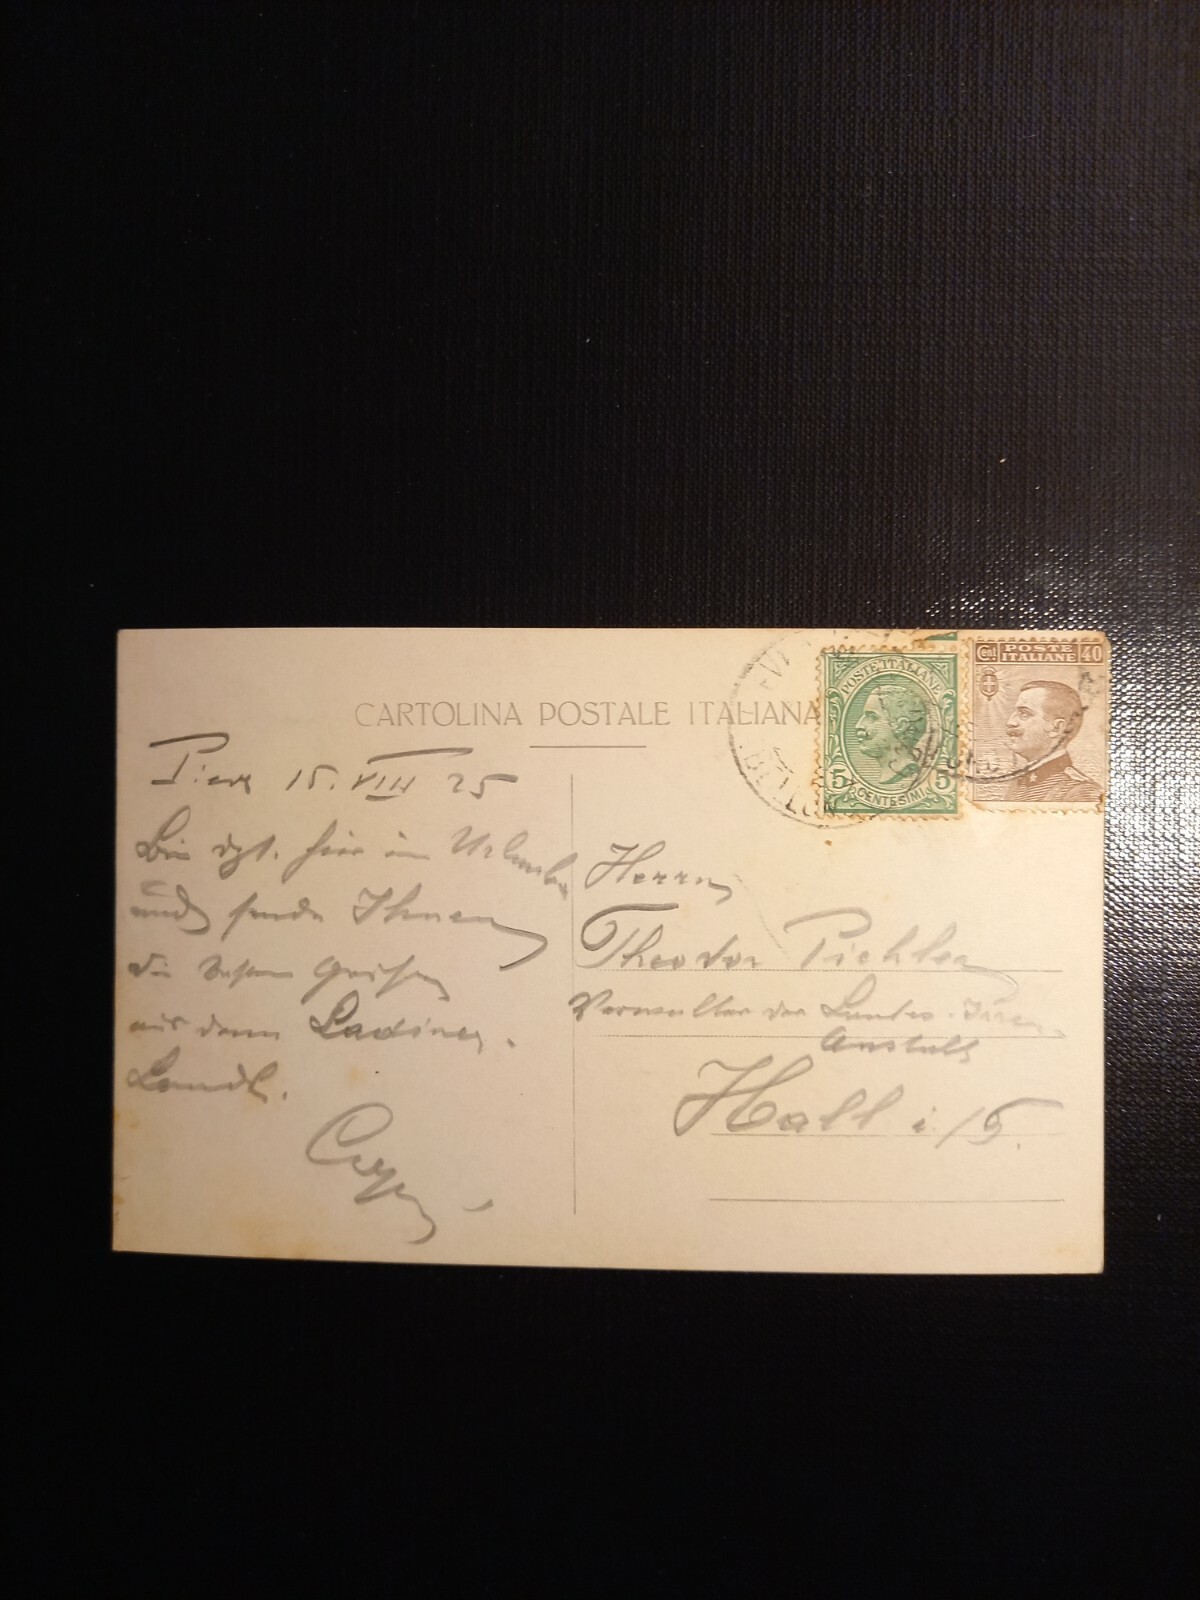 CARTOLINA POSTALE ITALIANA
POSTE ITALIANE
5 5
CENTESIMI
Cent POSTE ITALIANE 40
15. VIII 25
Bin hier im Urlaube
und sende Ihnen
die besten Grüße
aus dem Ladiner-
Landl.
Herrn
Theodor Pichler
Verwalter der Landes-Irren-
Anstalt
Hall i/T.